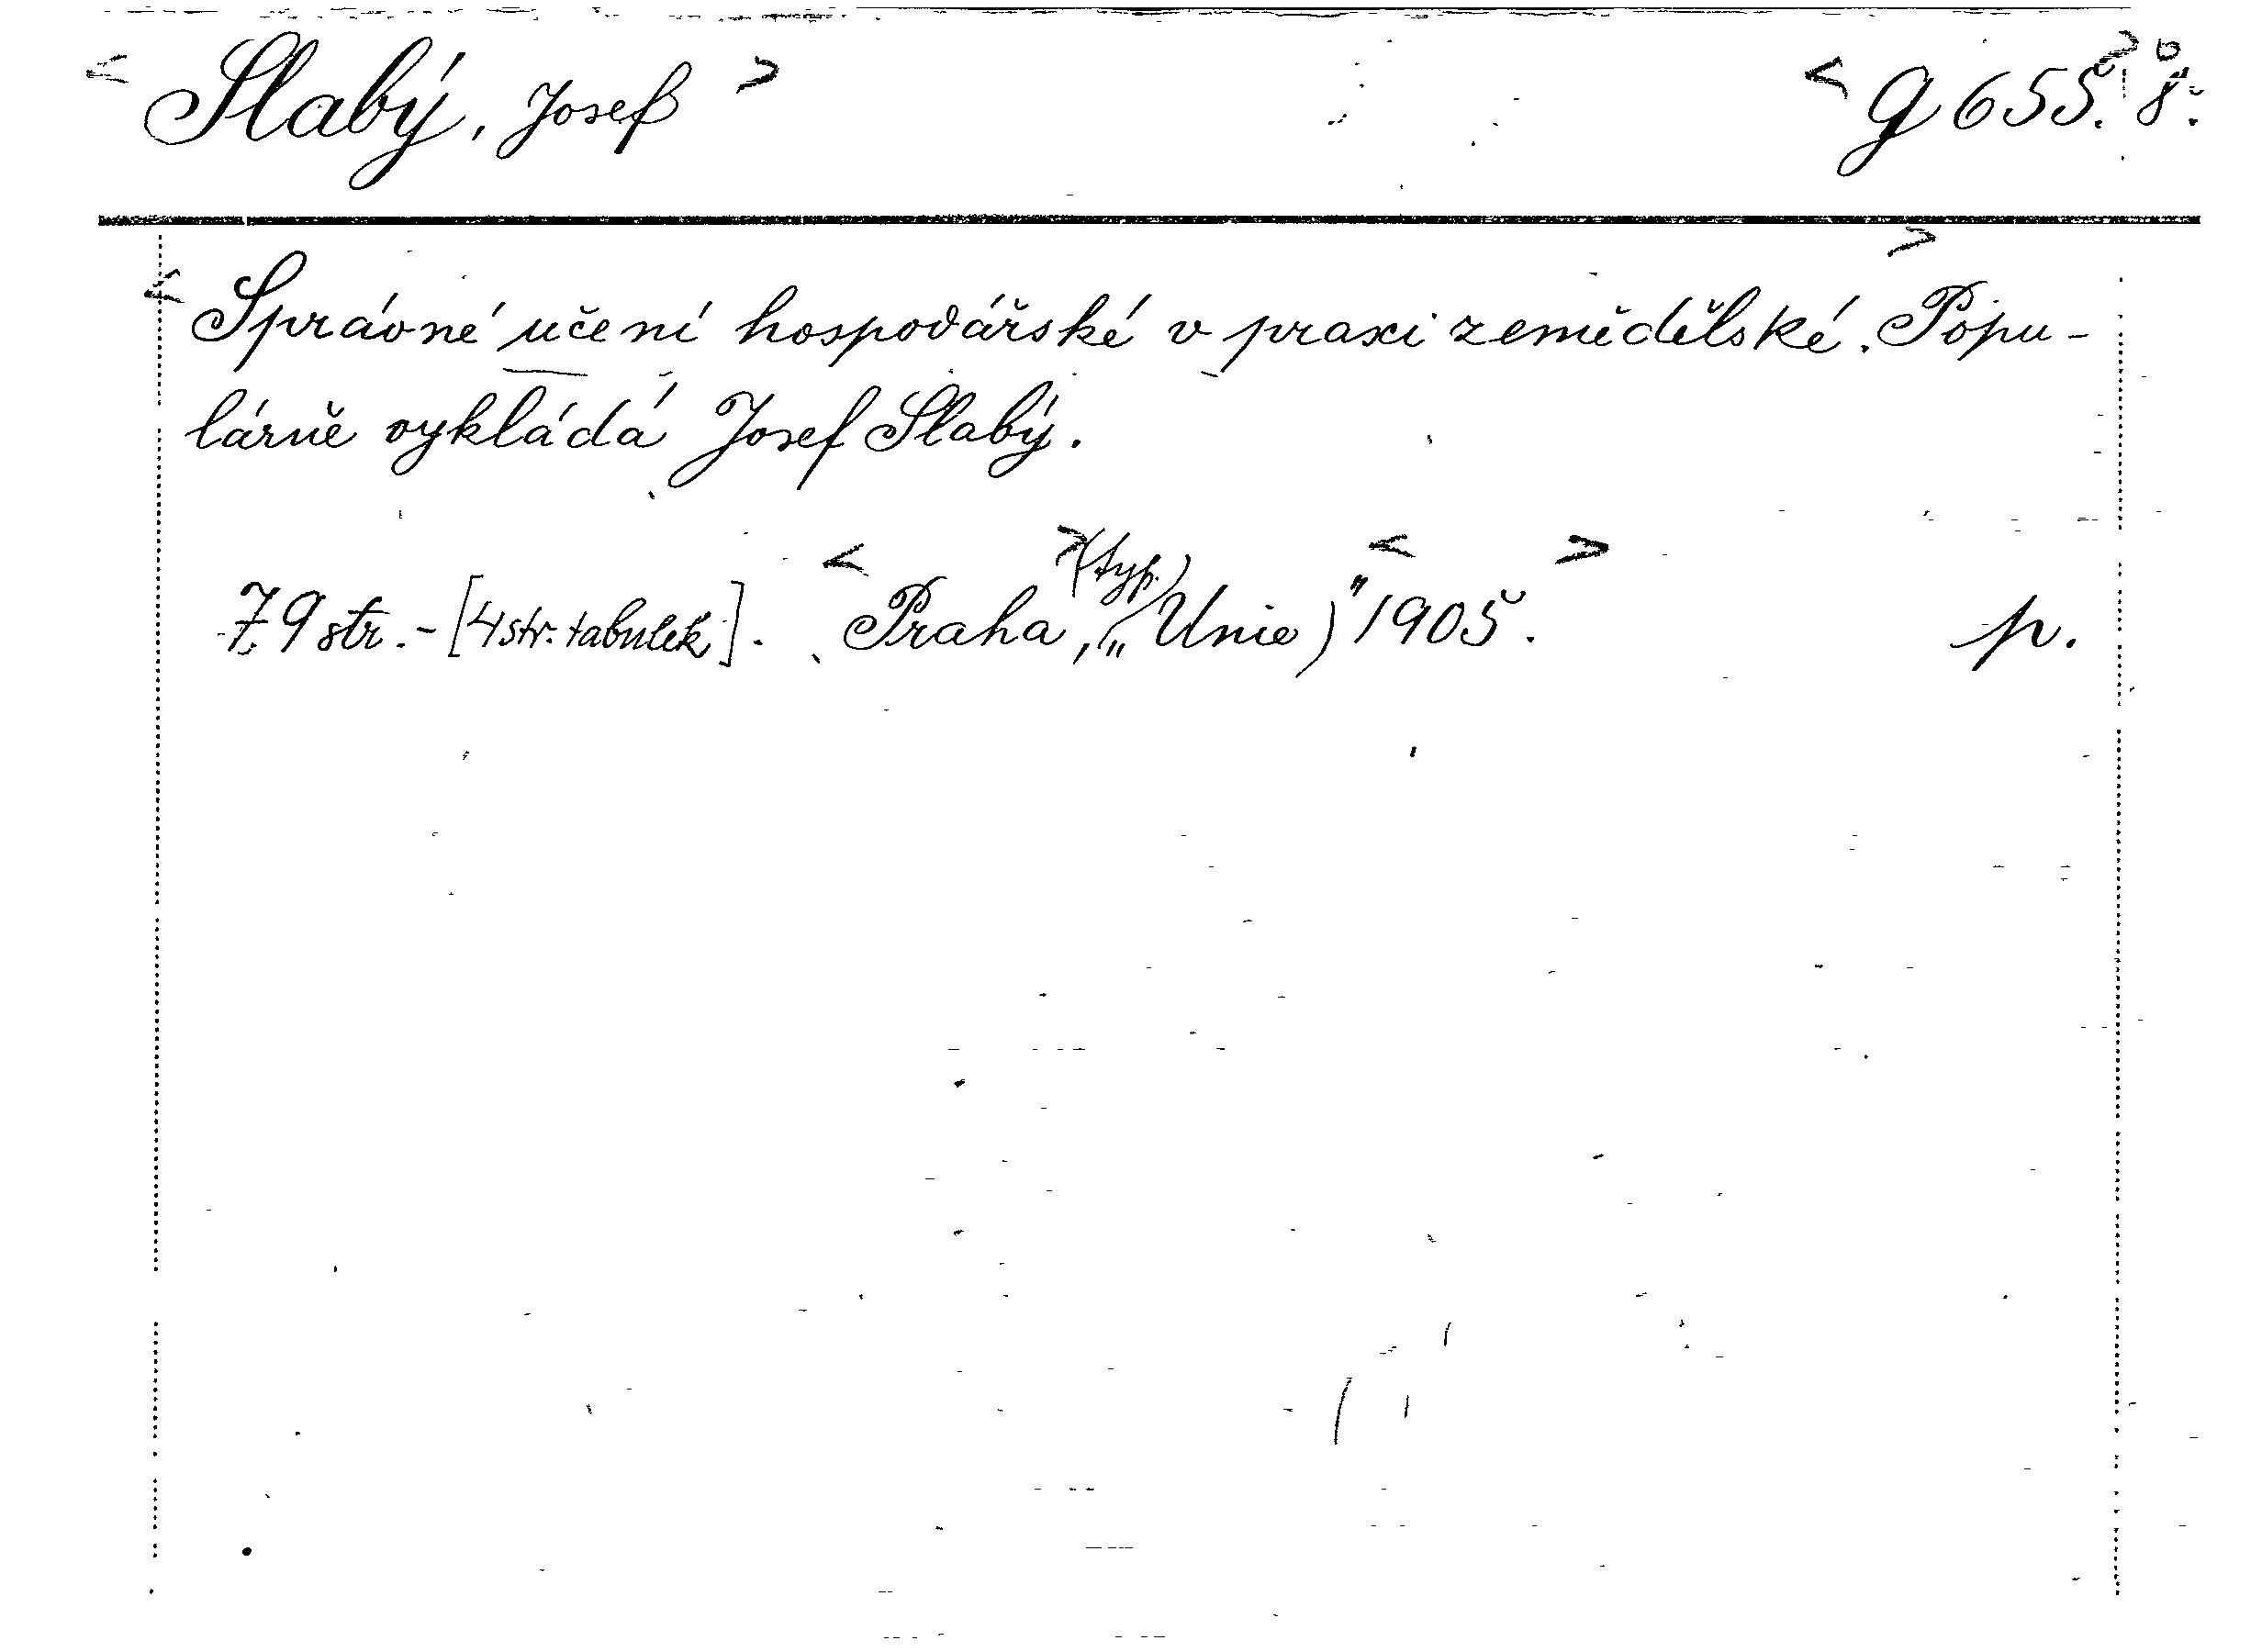 < Slabý, Josef > < g 655. > 8°.
< Správné učení hospodářské v praxi zemědělské. > Popu-
lárně vykládá Josef Slabý.
79 str. - [4 str. tabulek]. < Praha, > (typ.) („Unie)" < 1905. > p.